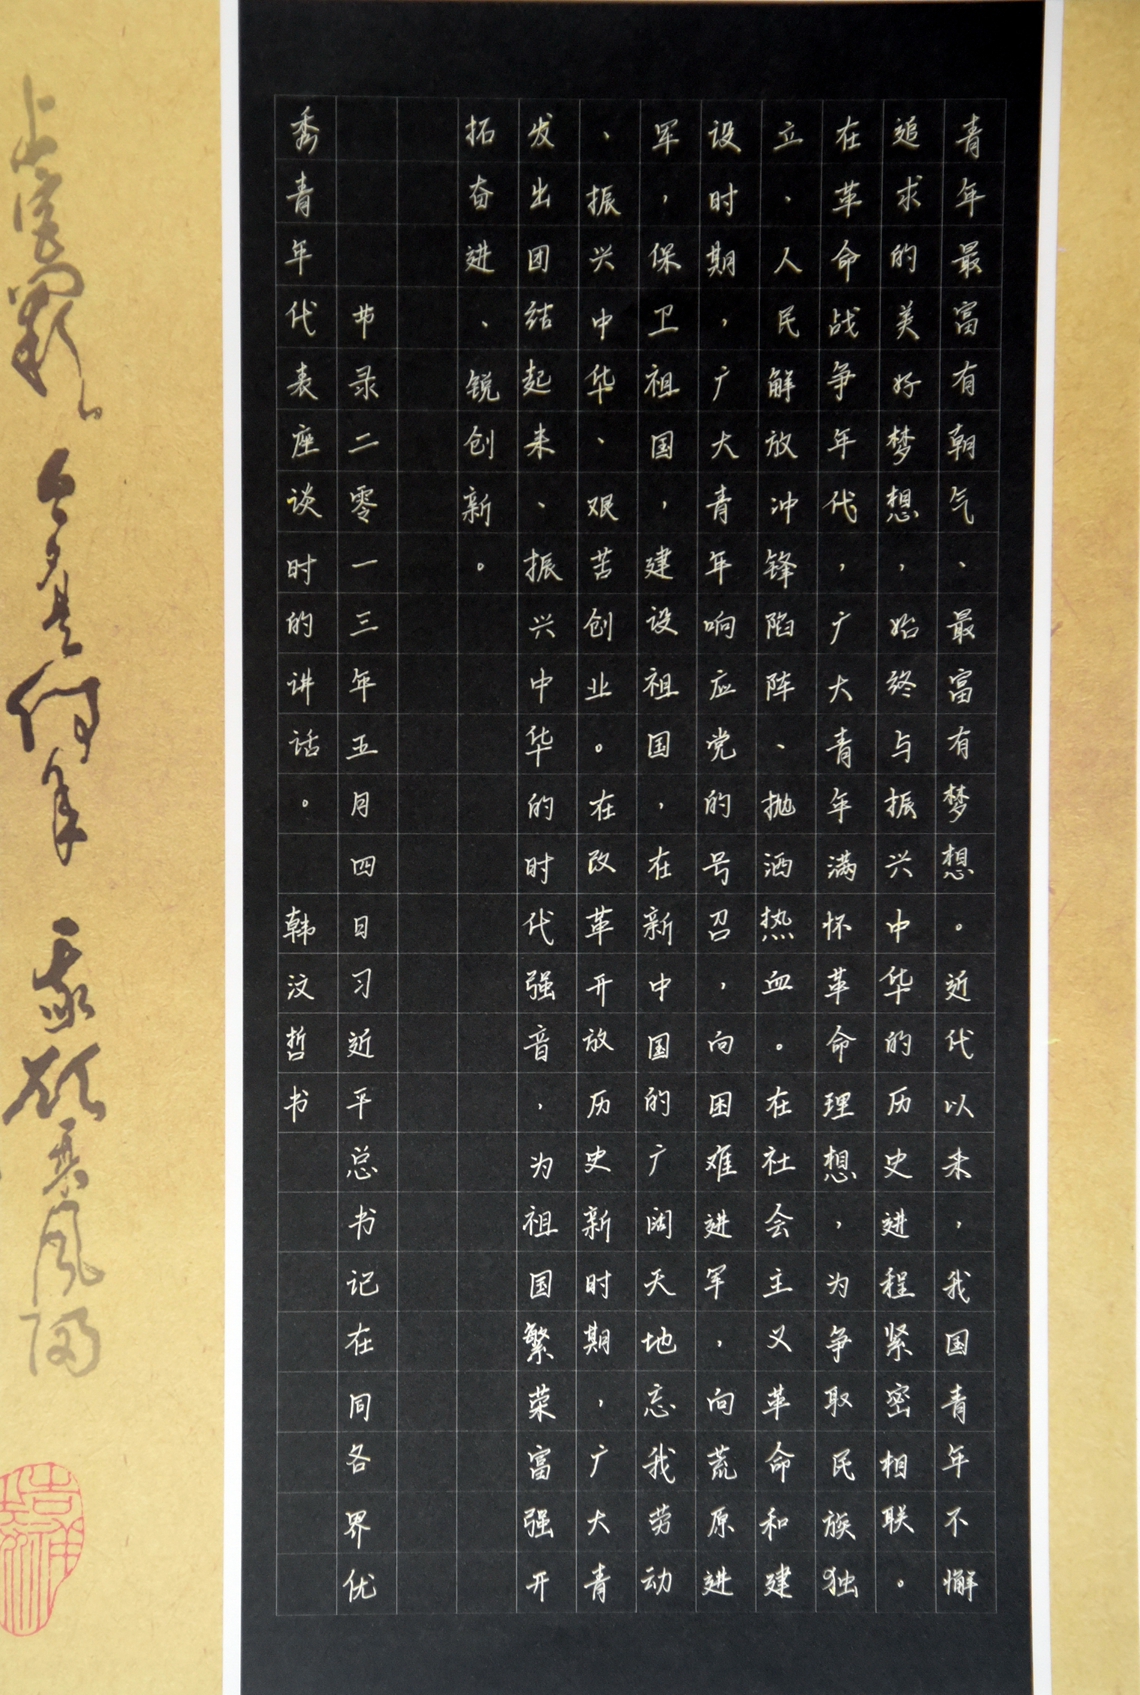 青年最富有朝气、最富有梦想。近代以来，我国青年不懈
追求的美好梦想，始终与振兴中华的历史进程紧密相联。
在革命战争年代，广大青年满怀革命理想，为争取民族独
立、人民解放冲锋陷阵、抛洒热血。在社会主义革命和建
设时期，广大青年响应党的号召，向困难进军，向荒原进
军，保卫祖国，建设祖国，在新中国的广阔天地忘我劳动
、振兴中华、艰苦创业。在改革开放历史新时期，广大青
发出团结起来、振兴中华的时代强音，为祖国繁荣富强开
拓奋进、锐创新。
节录二零一三年五月四日习近平总书记在同各界优
秀青年代表座谈时的讲话。 韩汶哲书
今夕是何年
我欲乘风归